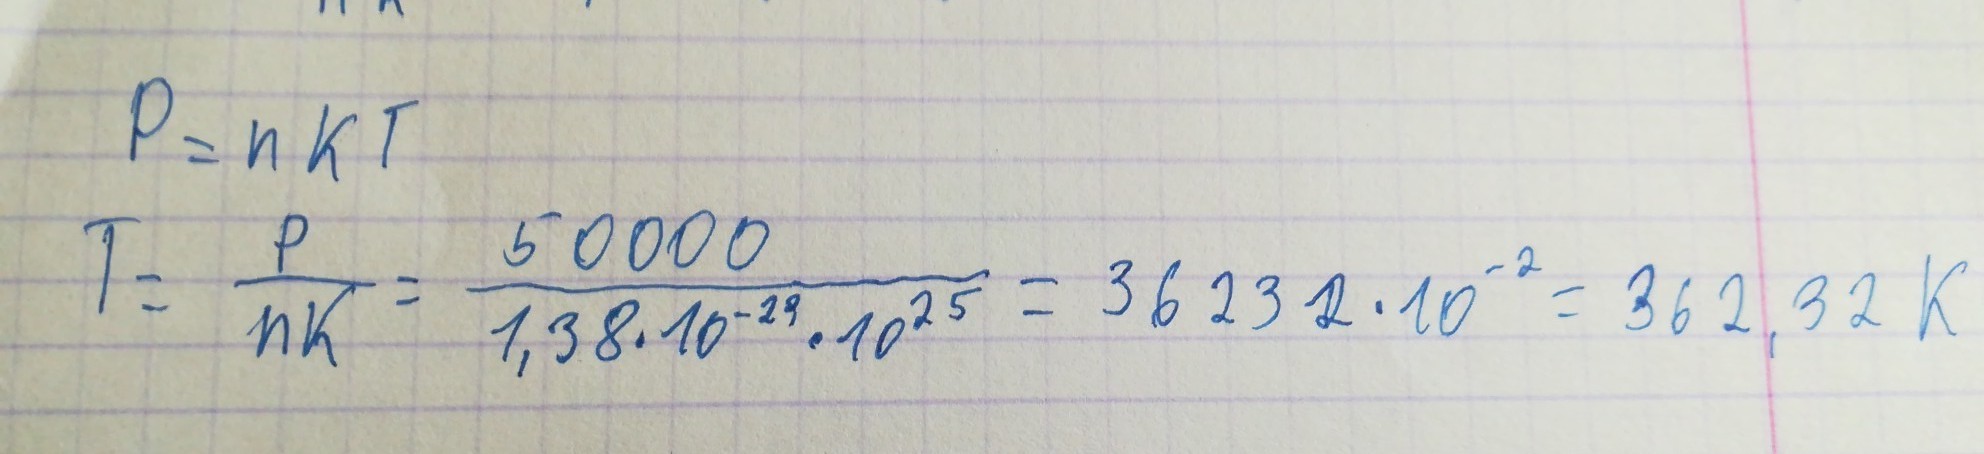 P = nKT
T = P/nK = 50000/1,38·10⁻²³·10²⁵ = 36232·10⁻² = 362,32 K